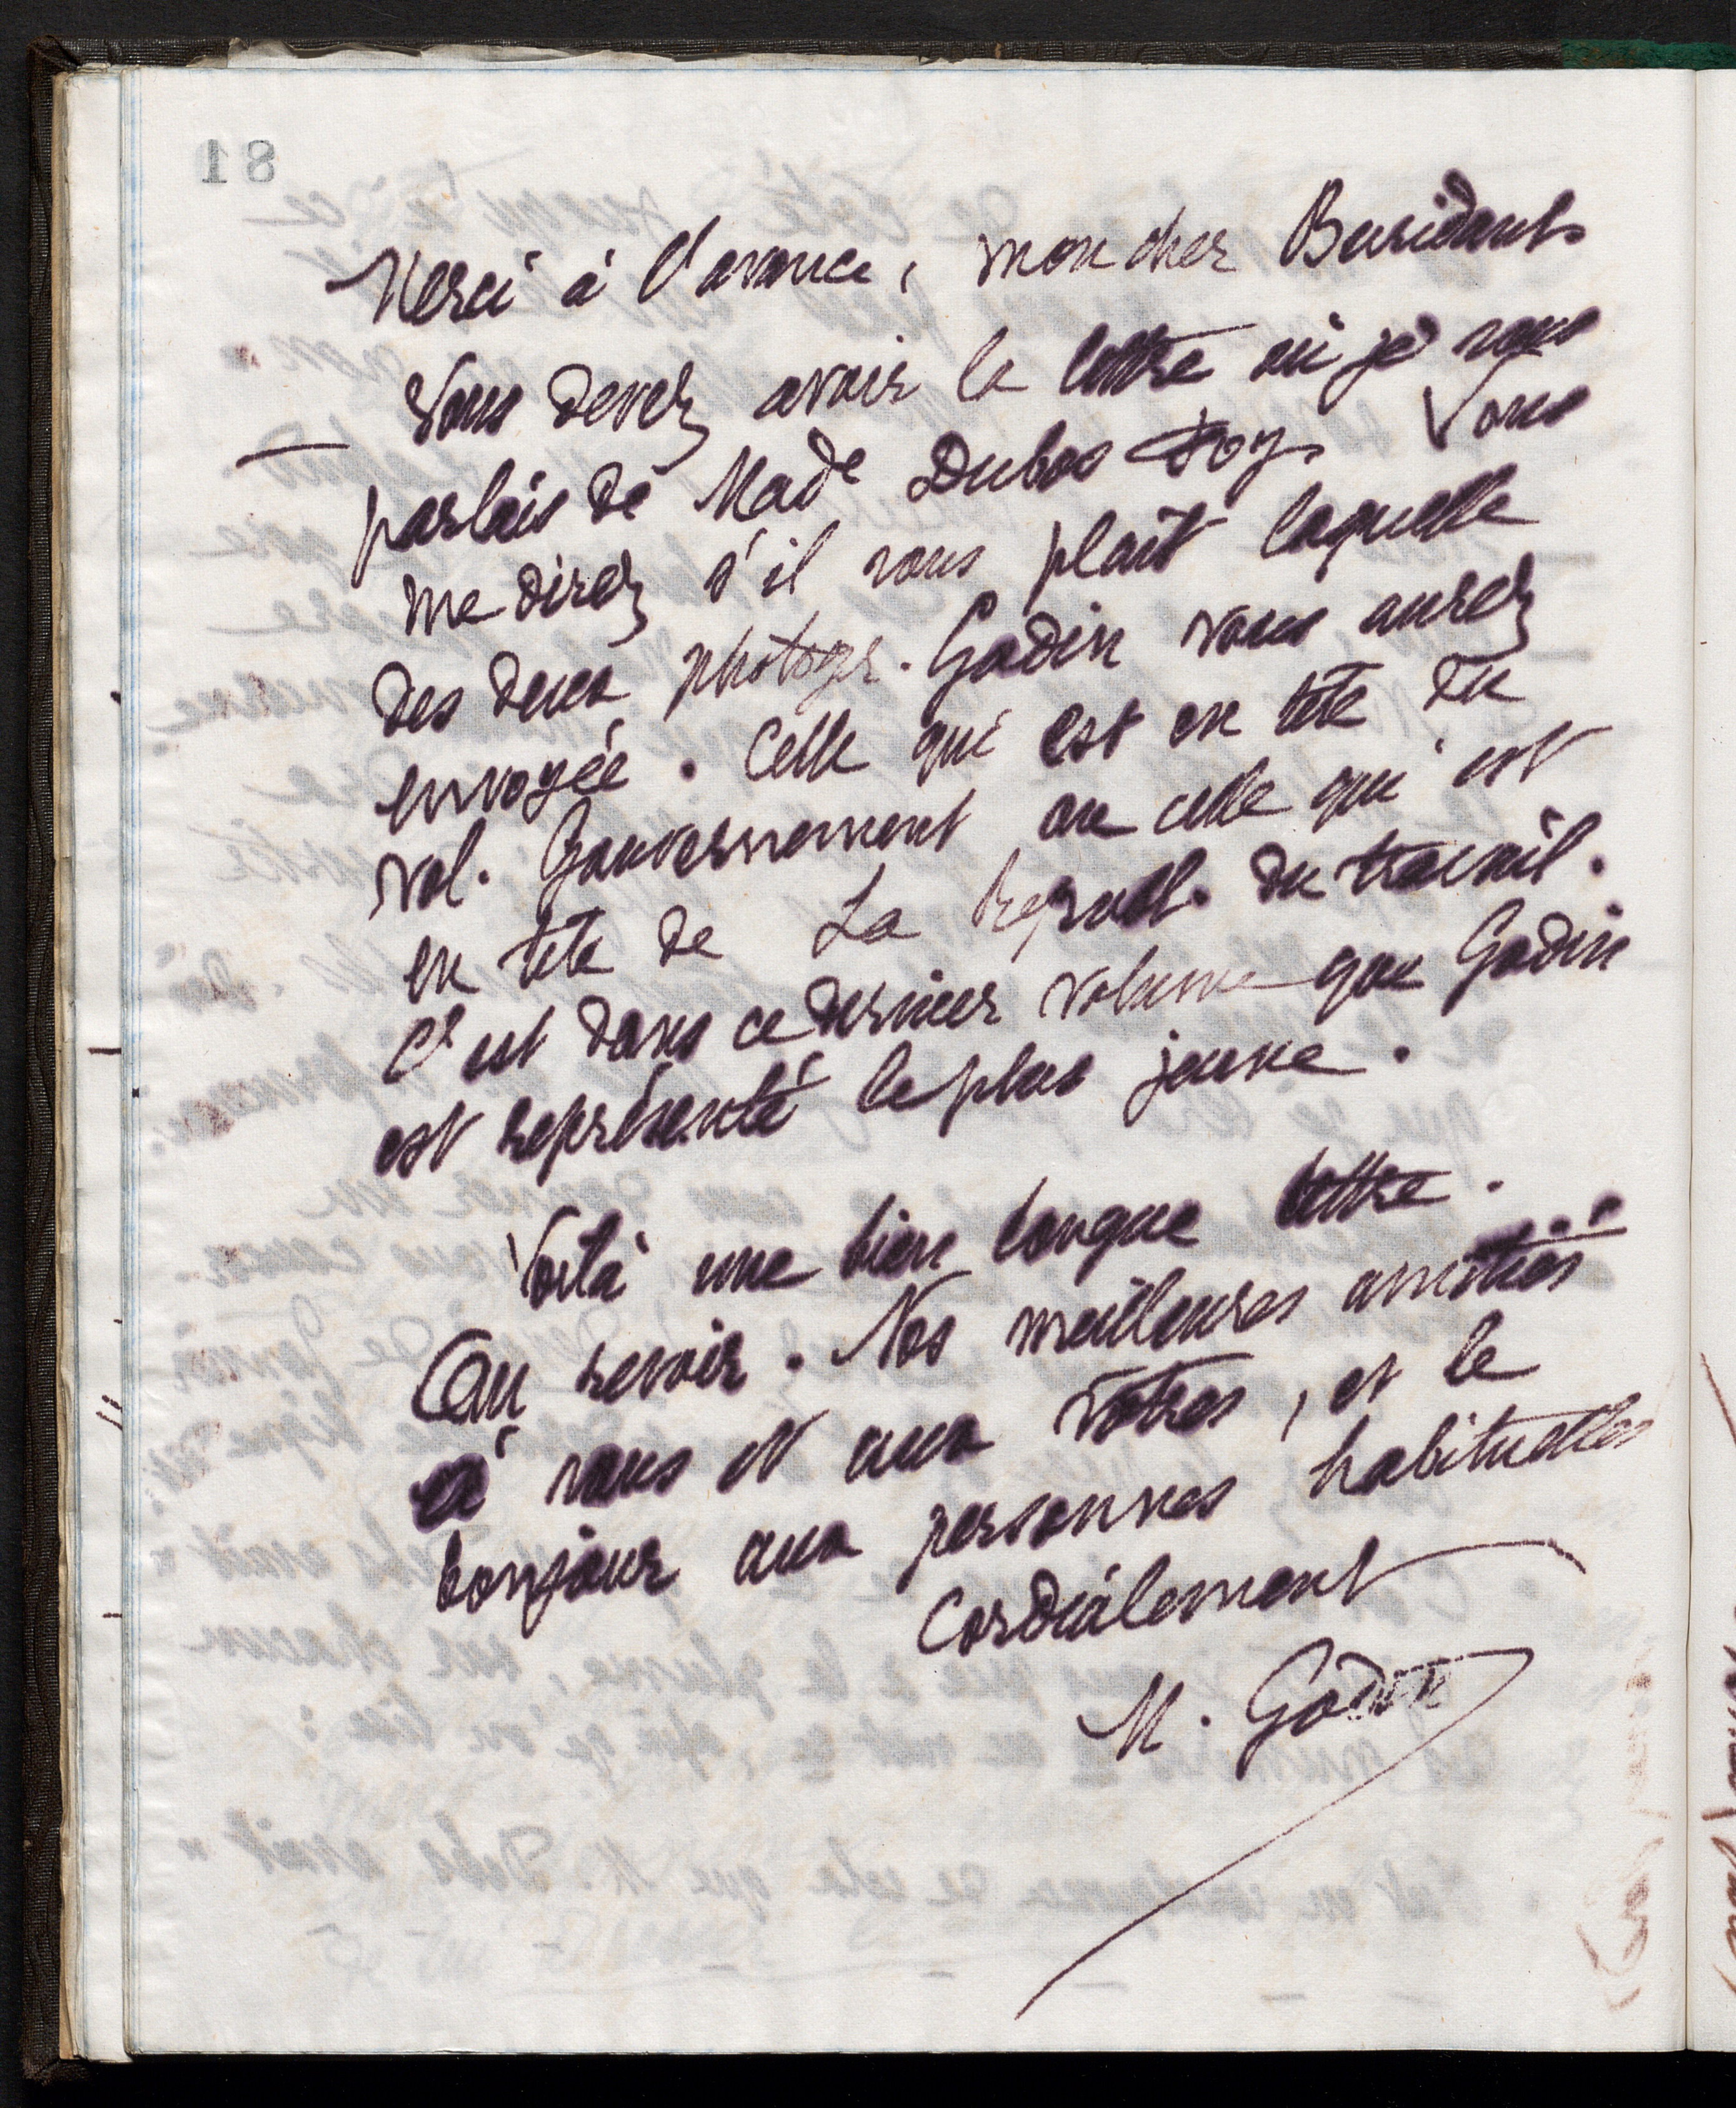 18
Merci à l'avance, mon cher Buridant.
— Vous devez avoir la lettre où je vous
parlais de Made Dubos Vous
me direz s'il vous plait laquelle
des deux photogr. Godin vous aurez
envoyée. Celle qui est en tête du
vol. Gouvernement ou celle qui est
en tête de La Républ. du travail.
C'est dans ce dernier volume que Godin
est représenté le plus jeune.
Voilà une bien longue lettre.
Au revoir. Nos meilleures amitiés
à vous et aux vôtres, et le
bonjour aux personnes habituelles
Cordialement
M. Godin